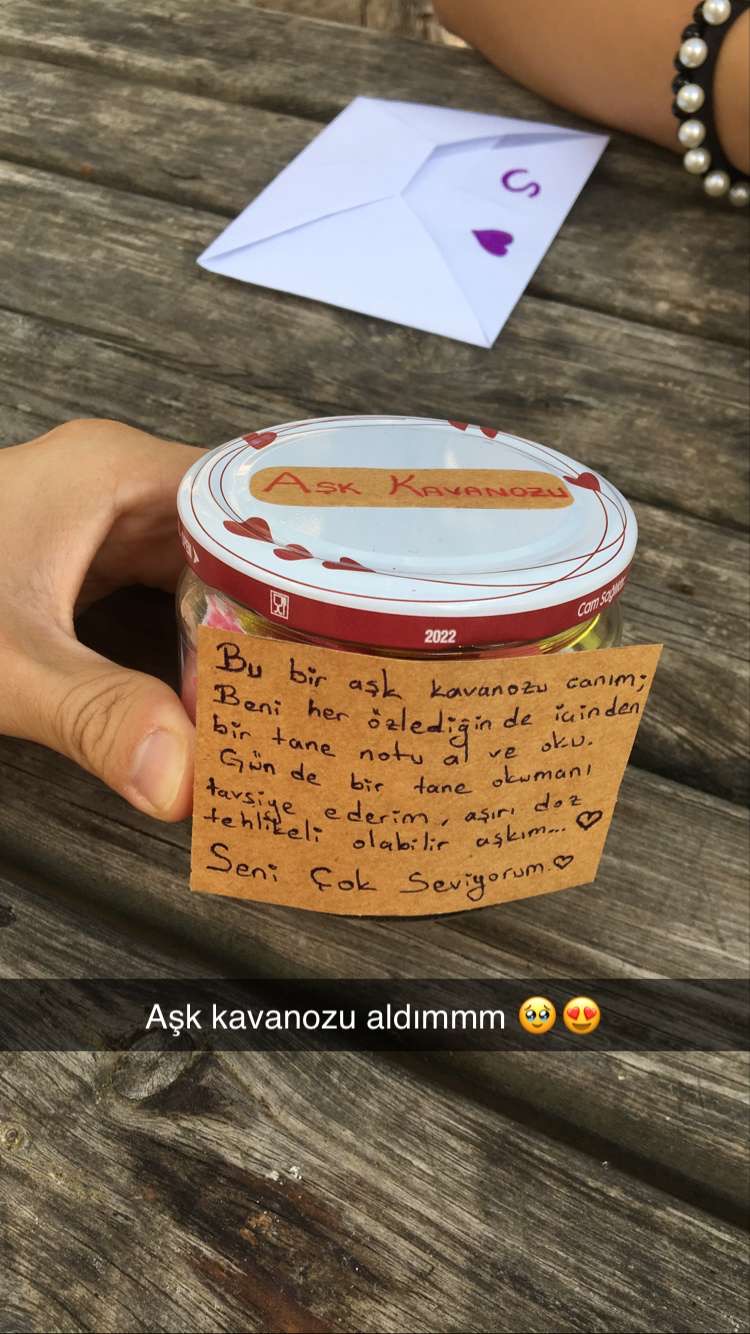 S
Aşk Kavanozu
2022
Cam Sağlıktır
Bu bir aşk kavanozu canım;
Beni her özlediğin de içinden
bir tane notu al ve oku.
Gün de bir tane okumanı
tavsiye ederim, aşırı doz
tehlikeli olabilir aşkım... ♡
Seni Çok Seviyorum.♡
Aşk kavanozu aldımmm 🥹😍